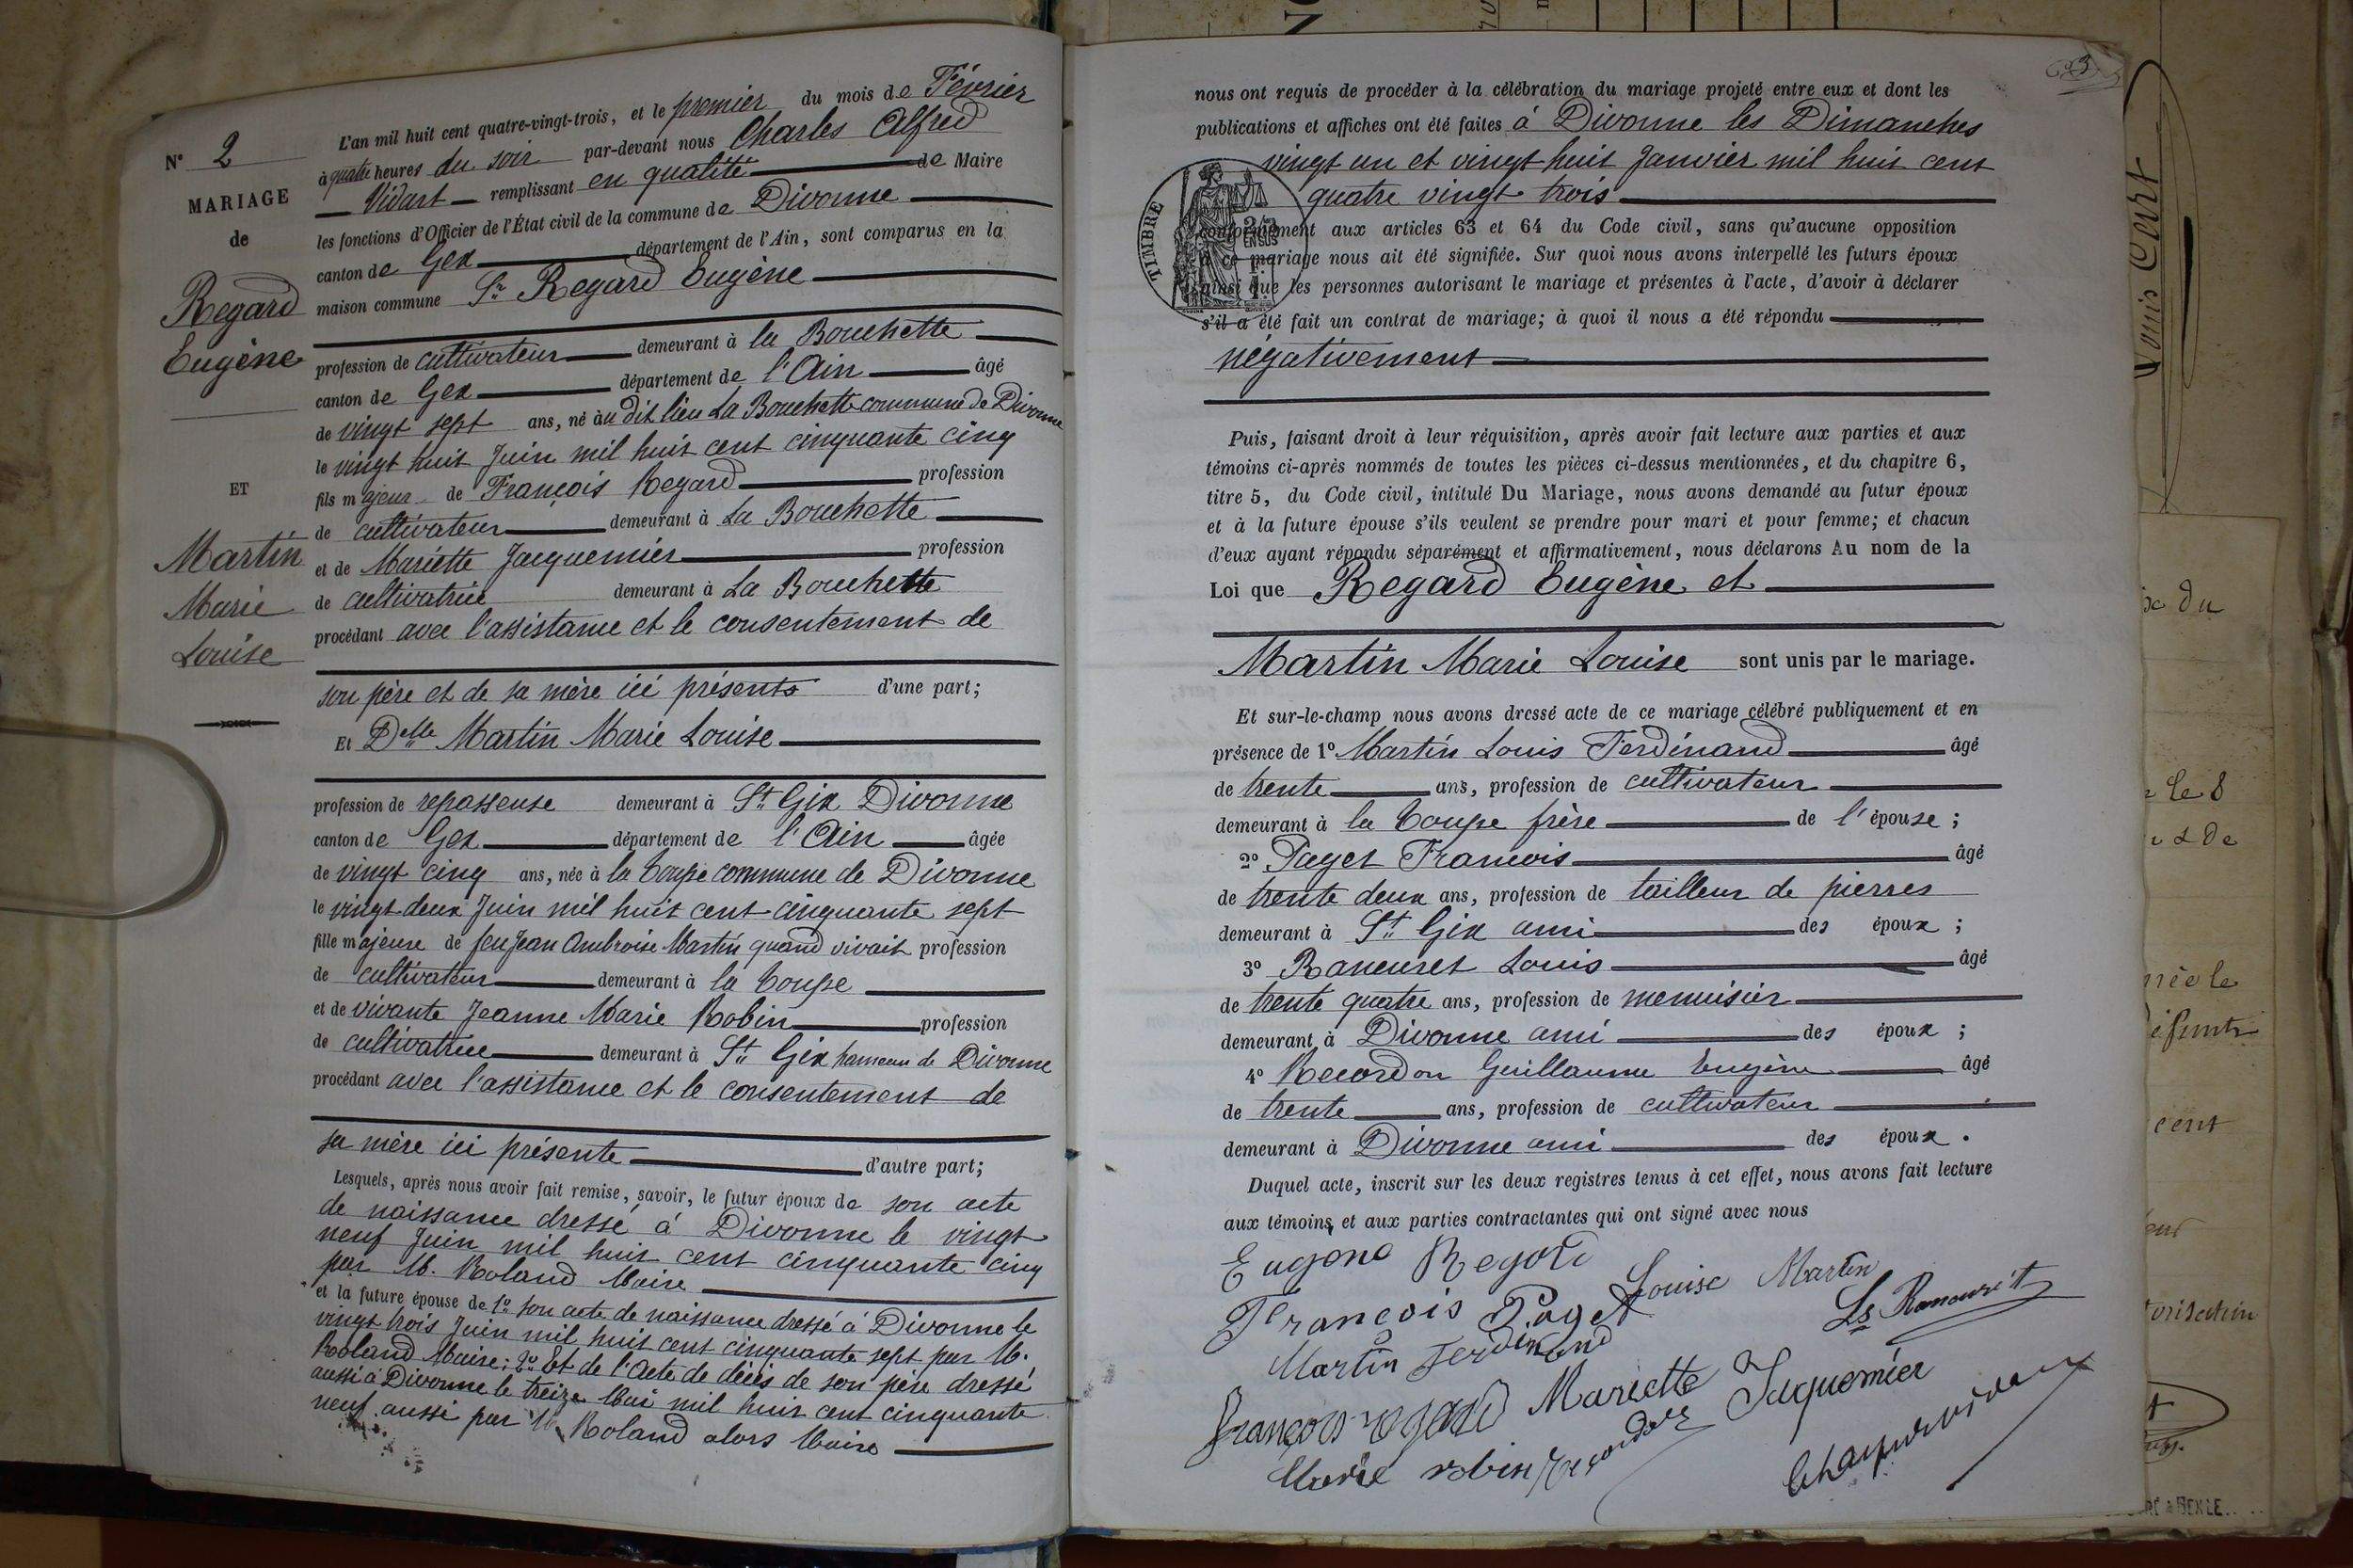 N° 2
MARIAGE
de
Regard
Eugène
ET
Martin
Marie
Louise
L'an mil huit cent quatre-vingt-trois, et le premier du mois de Février
à quatre heures du soir par-devant nous Charles Alfred
Vidart remplissant en qualité de Maire
les fonctions d'Officier de l'État civil de la commune de Divonne
canton de Gex département de l'Ain, sont comparus en la
maison commune Sr Regard Eugène
profession de cultivateur demeurant à la Bouchette
canton de Gex département de l'Ain âgé
de vingt sept ans, né àu dit lieu La Bouchette commune de Divonne
le vingt huit Juin mil huit cent cinquante cinq
fils majeur de François Regard profession
de cultivateur demeurant à La Bouchette
et de Mariette Jacquemier profession
de cultivatrice demeurant à La Bouchette
procédant avec l'assistance et le consentement de
son père et de sa mère ici présents d'une part;
Et Delle Martin Marie Louise
profession de repasseuse demeurant à St Gix Divonne
canton de Gex département de l'Ain âgée
de vingt cinq ans, née à la Coupe commune de Divonne
le vingt deux Juin mil huit cent cinquante sept
fille majeure de feu Jean Ambroise Martin quand vivait profession
de cultivateur demeurant à la Coupe
et de vivante Jeanne Marie Robin profession
de cultivatrice demeurant à St Gix hameau de Divonne
procédant avec l'assistance et le consentement de
sa mère ici présente d'autre part;
Lesquels, après nous avoir fait remise, savoir, le futur époux de son acte
de naissance dressé à Divonne le vingt
neuf Juin mil huit cent cinquante cinq
par M. Roland Maire
et la future épouse de 1° son acte de naissance dressé à Divonne le
vingt trois Juin mil huit cent cinquante sept par M.
Roland Maire; 2° Et de l'Acte de décès de son père dressé
aussi à Divonne le treize Mai mil huit cent cinquante
neuf aussi par M. Roland alors Maire
nous ont requis de procéder à la célébration du mariage projeté entre eux et dont les
publications et affiches ont été faites à Divonne les Dimanches
vingt un et vingt huit Janvier mil huit cent
quatre vingt trois
TIMBRE
conformément aux articles 63 et 64 du Code civil, sans qu'aucune opposition
à ce mariage nous ait été signifiée. Sur quoi nous avons interpellé les futurs époux
ainsi que les personnes autorisant le mariage et présentes à l'acte, d'avoir à déclarer
s'il a été fait un contrat de mariage; à quoi il nous a été répondu
négativement
Puis, faisant droit à leur réquisition, après avoir fait lecture aux parties et aux
témoins ci-après nommés de toutes les pièces ci-dessus mentionnées, et du chapitre 6,
titre 5, du Code civil, intitulé Du Mariage, nous avons demandé au futur époux
et à la future épouse s'ils veulent se prendre pour mari et pour femme; et chacun
d'eux ayant répondu séparément et affirmativement, nous déclarons Au nom de la
Loi que Regard Eugène et
Martin Marie Louise sont unis par le mariage.
Et sur-le-champ nous avons dressé acte de ce mariage célébré publiquement et en
présence de 1° Martin Louis Ferdinand âgé
de trente ans, profession de cultivateur
demeurant à la Coupe frère de l'épouse;
2° Paget Francois âgé
de trente deux ans, profession de tailleur de pierres
demeurant à St Gix ami des époux;
3° Raneuret Louis âgé
de trente quatre ans, profession de menuisier
demeurant à Divonne ami des époux;
4° Recordon Guillaume Eugène âgé
de trente ans, profession de cultivateur
demeurant à Divonne ami des époux.
Duquel acte, inscrit sur les deux registres tenus à cet effet, nous avons fait lecture
aux témoins et aux parties contractantes qui ont signé avec nous
Eugene Regard
Louise Martin
François Paget
Martin Ferdinand
François regard Mariette Jaquemier
Marie robin
Louis
du
le 8
cent